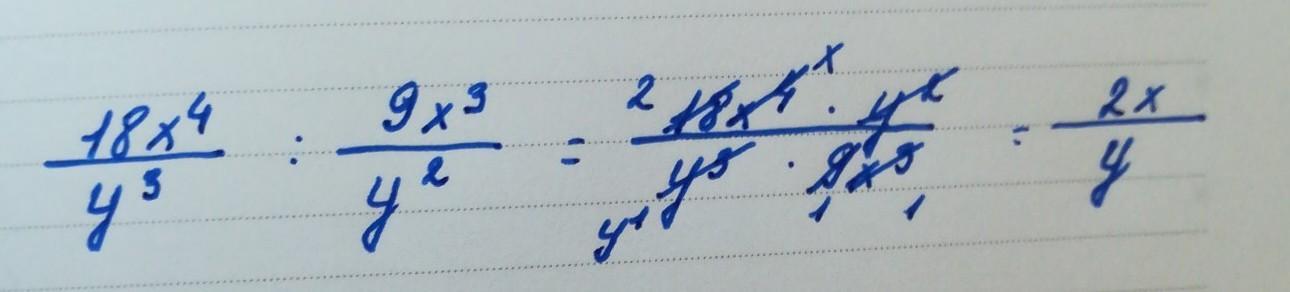 18x⁴/y³ : 9x³/y² = 2 18x⁴ x · y²/y³ · 9x³ y¹ 1 1 = 2x/y